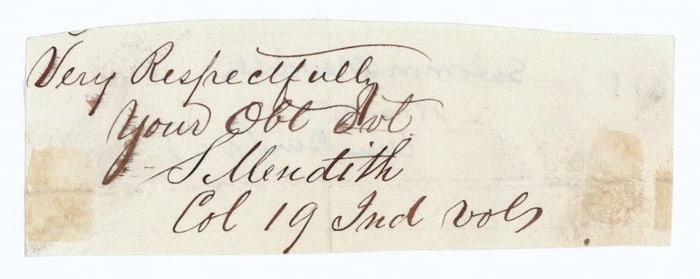 Very Respectfully
Your Obt Svt
S Meredith
Col 19 Ind vols